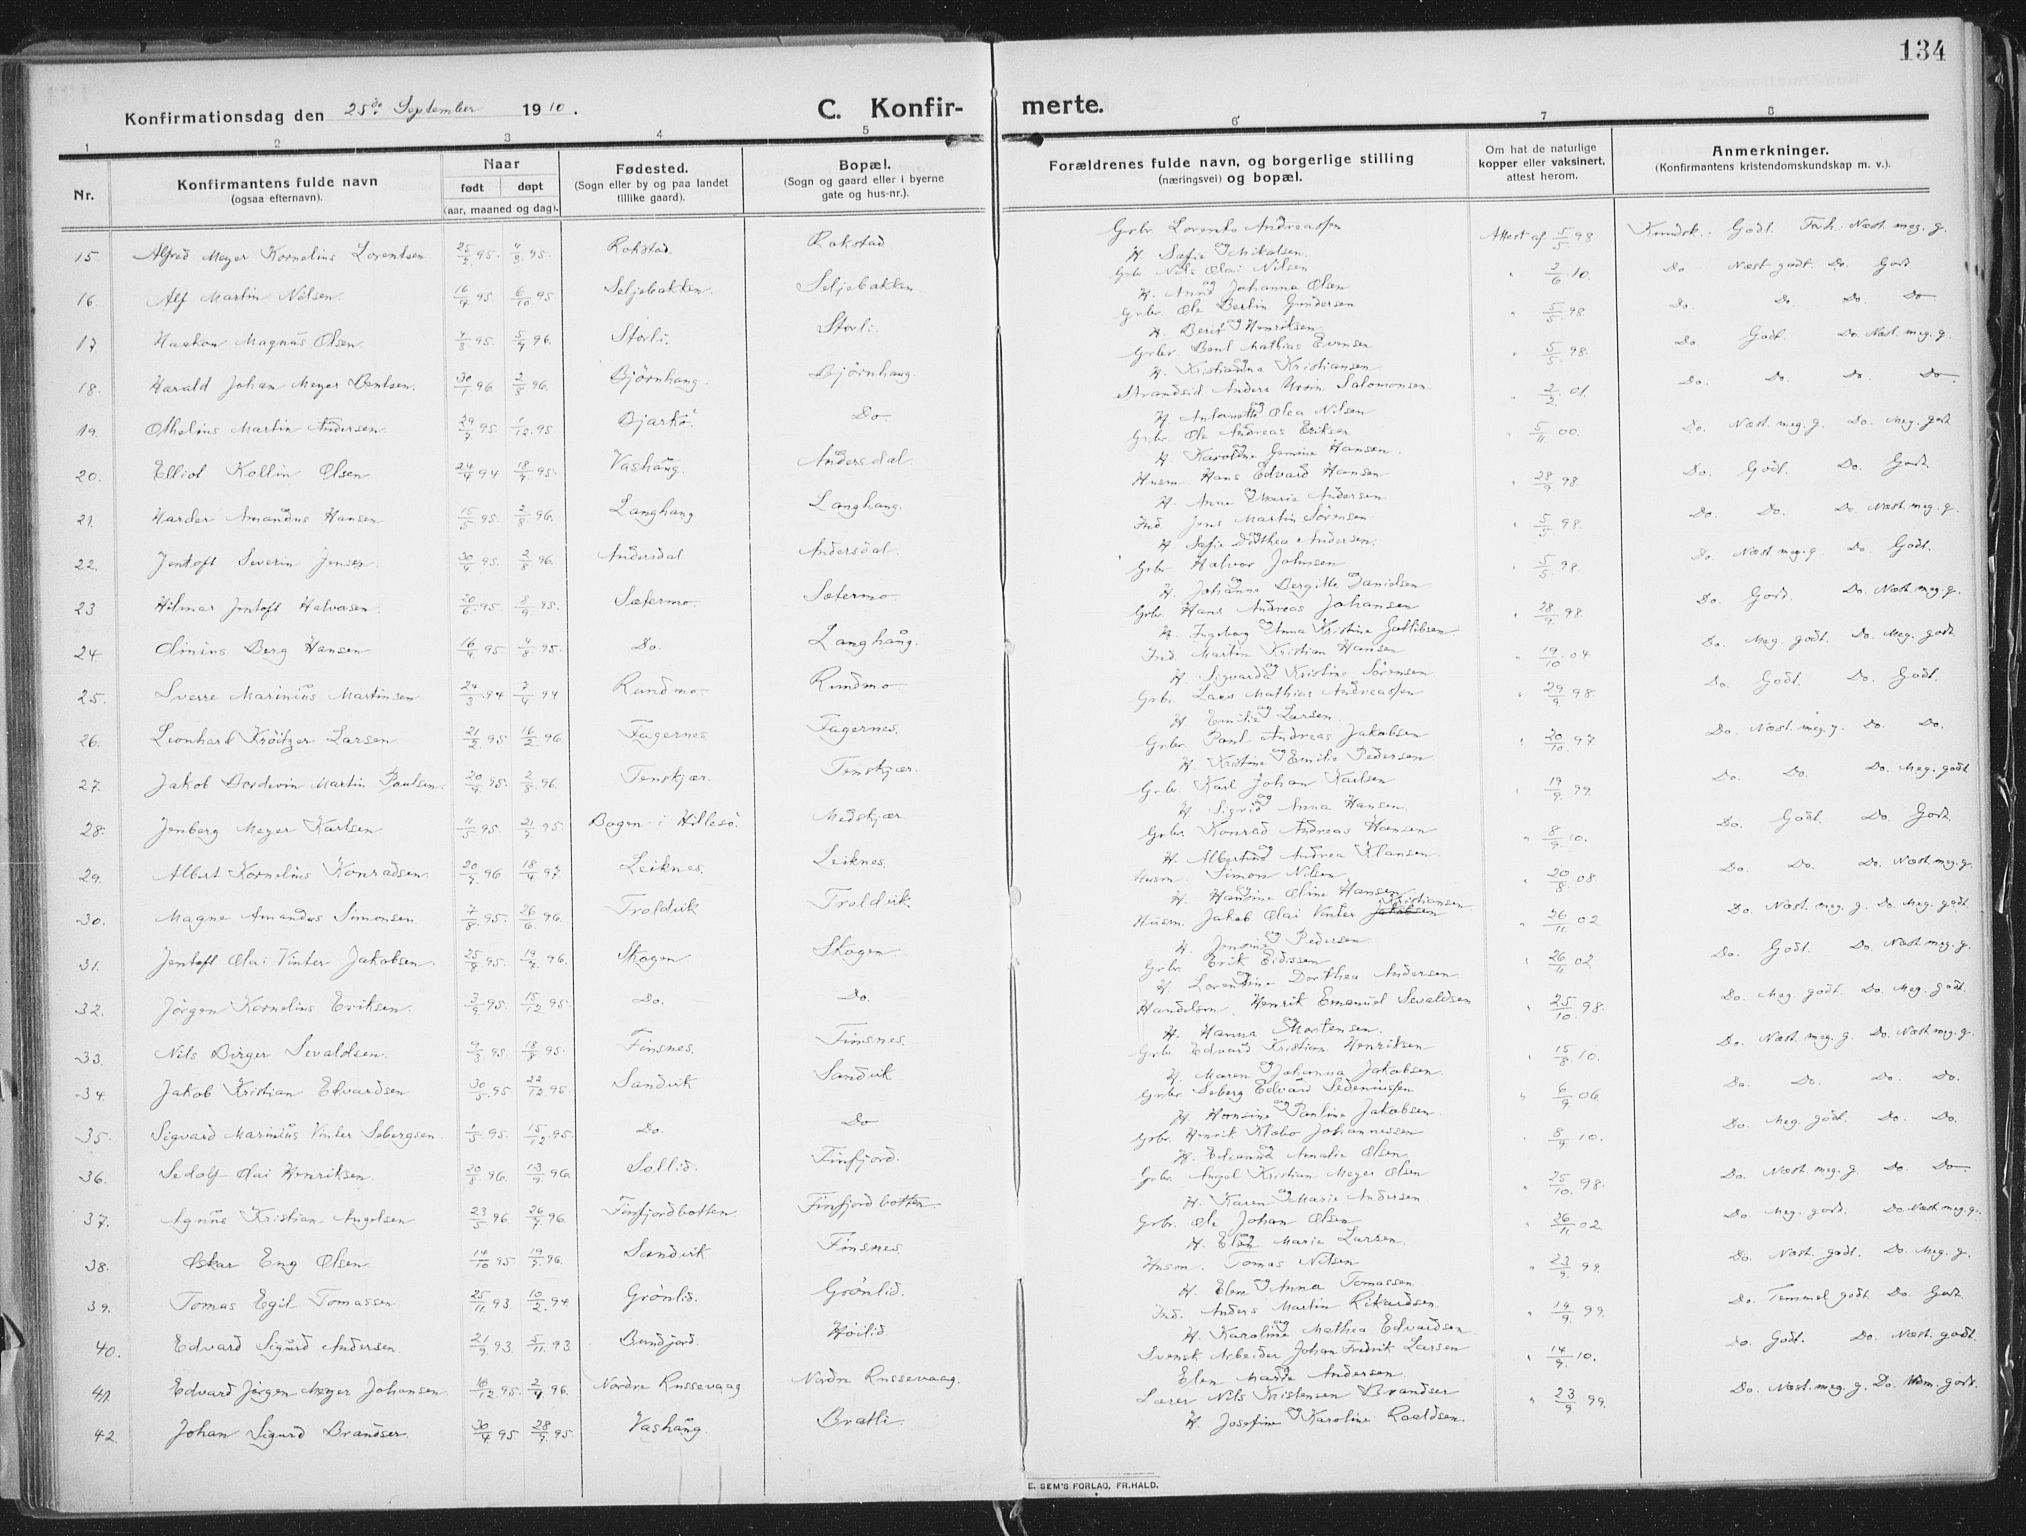 134
Konfirmationsdag den 25de September 1910. C. Konfir- merte.
1 2 3 4 5 6 7 8
Nr. Konfirmantens fulde navn (ogsaa efternavn). Naar født døpt (aar, maaned og dag). Fødested. (Sogn eller by og paa landet tillike gaard). Bopæl. (Sogn og gaard eller i byerne gate og hus-nr.). Forældrenes fulde navn, og borgerlige stilling (næringsvei) og bopæl. Om hat de naturlige kopper eller vaksinert, attest herom. Anmerkninger. (Konfirmantens kristendomskundskap m. v.).
15 Alfred Meyer Kornelius Lorentsen 25/2 95. 4/8 95. Rokstad. Rokstad Grbr. Lorents Andreassen og H. Sofie Mikalsen. Attest af 5/5 98 Kundsk.: Godt. Forh.: Næst meg. g.
16. Alf Martin Nilsen. 16/9 95 6/10 95 Seljebakken. Seljebakken. Grbr. Nils Olai Nilsen og H. Anna Johanna Olsen " 2/6 10. Do Næst godt. Do. Godt
17. Haakon Magnus Olsen 4/8 95. 5/9 96. Storli. Storli. Grbr. Ole Berlin Gundersen og H. Berit Henriksen. " 5/5 98. Do. Do. Do. Do
18. Harald Johan Meyer Bentsen. 30/1 96 2/8 96. Bjørnhaug. Bjørnhaug. Grbr. Bent Mathias Evensen og H. Kristianna Kristiansen " 5/5 98. Do Godt. Do. Næst meg. g.
19. Othelius Martin Andersen. 29/7 95. 1/12 95 Bjarkö. Do Strandsid Anders Ursin Salomonsen og H. Antonette Olea Nilsen " 2/2 01. Do. Do. Do. Do
20. Elliot Kollin Olsen 24/4 94 18/7 95. Vashaug. Andersdal. Grbr. Ole Andreas Eriksen og H. Karoline Gemine Hansen. " 5/11 00. Do. Næst meg. g. Do. Meg. godt
21. Harder Amandus Hansen 15/5 95. 2/8 96. Langhaug Langhaug. Husm. Hans Edvard Hansen og H. Anne Marie Andersen " 28/9 98. Do. Godt. Do. Godt.
22. Jentoft Severin Jensen 30/4 95. 2/8 96. Andersdal Andersdal. Ind. Jens Martin Sørensen og H. Sofie Dorthea Andersen. " 5/5 98. Do. Do. Do. Næst meg. g.
23 Hilmar Jentoft Halvorsen. 20/6 95 8/9 95. Sætermo. Sætermo Grbr. Halvor Johnsen og H. Johanne Bergitte Danielsen " 5/5 98. Do. Næst meg. g. Do Godt.
24. Olinius Berg Hansen 16/4 95. 4/8 95. Do. Langhaug. Grbr. Hans Andreas Johansen og H. Ingeborg Anna Kristine Gottlibsen " 28/9 98. Do. Godt. Do. Næst meg. g.
25. Sverre Marinius Martinsen 24/3 94 7/4 94 Rundmo. Rundmo Ind. Martin Kristian Hansen og H. Sigvarda Kristine Sørensen " 19/10 04 Do. Meg. godt. Do. Meg. godt
26. Leonhard Kröitzer Larsen. 21/2 95 16/2 96. Fagernes Fagernes. Grbr. Lars Mathias Andreassen og H. Emilie Larsen. " 29/9 98. Do. Godt. Do. Godt.
27. Jakob Bordevin Martin Paulsen. 20/9 95. 2/8 96. Tenskjær. Tenskjær. Grbr. Paul Andreas Jakobsen og H. Kristine Emilie Pedersen " 20/10 97 Do. Næst. meg. g. Do. Do.
28. Jenberg Meyer Karlsen 11/5 95. 21/7 95 Bogen i Hillesö. Medskjær Grbr. Karl Johan Karlsen og H. Sigrid Anna Hansen. " 19/9 99. Do. Do. Do. Meg. godt
29. Albert Kornelius Konradsen. 20/7 96 18/4 97. Leiknes. Leiknes. Grbr. Konrad Andreas Hansen og H. Albertine Andrea Klausen. " 8/9 10. Do. Godt. Do. Godt.
30. Magne Amandus Simonsen. 7/8 95. 26/6 96. Troldvik Troldvik Husm. Simon Nilsen og H. Hansine Oline Hansen " 20/8 08. Do. Do. Do. Næst meg. g.
31. Jentoft Olai Vinter Jakobsen. 25/9 95. 19/7 96. Skogen Skogen Husm. Jakob Olai Vinter Jakobsen Kristiansen og H. Jensine Pedersen " 26/11 02 Do. Næst. meg. g. Do. Meg. godt.
32. Jörgen Kornelius Eriksen. 3/9 95. 15/12 95. Do. Do. Grbr. Erik Eidissen og H. Lorentine Dorthea Andersen " 26/11 02 Do. Godt. Do. Næst meg. g.
33. Nils Birger Sevaldsen. 9/3 95. 18/8 95. Finsnes. Finsnes. Handelsm. Henrik Emanuel Sevaldsen og H. Hanna Mortensen. " 25/10 98. Do. Meg. godt. Do. Meg. godt.
34. Jakob Kristian Edvardsen 30/5 95 22/12 95. Sandvik Sandvik Grbr. Edvard Kristian Henriksen og H. Maren Johanna Jakobsen. " 15/8 10. Do. Næst. meg. g. Do. Næst meg. g.
35. Sigvard Marinius Vinter Sebergsen. 1/5 95. 15/12 95. Do. Do Grbr. Seberg Edvard Sedeniussen og H. Hansine Pauline Jakobsen. " 6/9 06. Do. Do. Do. Do.
36. Sedolf Olai Henriksen. 20/8 96. 13/9 96. Sollid. Finfjord. Grbr. Henrik Klæbo Johannessen og H. Edianna Amalie Olsen. " 8/9 10. Do. Meg. godt. Do. Do.
37. Agnus Kristian Angelsen 23/5 96 26/7 96. Finfjordbotten. Finfjordbotten. Grbr. Angel Kristian Meyer Olsen og H. Karen Marie Andersen. " 25/10 98. Do. Næst. meg. g. Do. Do
38. Oskar Eng Olsen. 14/10 95. 19/7 96. Sandvik Finsnes. Grbr. Ole Johan Olsen og H. Elen Marie Larsen. " 26/11 02 Do. Meg. godt. Do. Næst meg. g.
39. Tomas Egil Tomassen. 25/11 93. 10/2 94. Grönlid. Grönlid. Husm. Tomas Nilsen og H. Elen Anna Tomassen " 23/9 99. Do. Næst. godt. Do. Meg. g.
40. Edvard Sigurd Andersen. 21/9 93. 5/11 93 Bundjord. Höilid. Ind. Anders Martin Rikardsen og H. Karoline Mathea Edvardsen " 14/9 99. Do. Temmel. godt. Do. Godt
41. Edvard Jörgen Meyer Johansen. 16/12 95. 2/4 96. Nordre Russevaag Nordre Russevaag. Svensk Arbeider Johan Fredrik Larsen og Elen Marta Andersen. " 14/9 10. Do. Godt. Do. Næst. godt.
42. Johan Sigurd Brandser. 30/4 95 28/7 95 Vashaug. Bratli. Lærer Nils Kristensen Brandser og H. Josefine Karoline Roaldsen. " 23/9 99. Do. Næst. meg. g. Do. Udm. godt.
E. SEM'S FORLAG, FR.HALD.